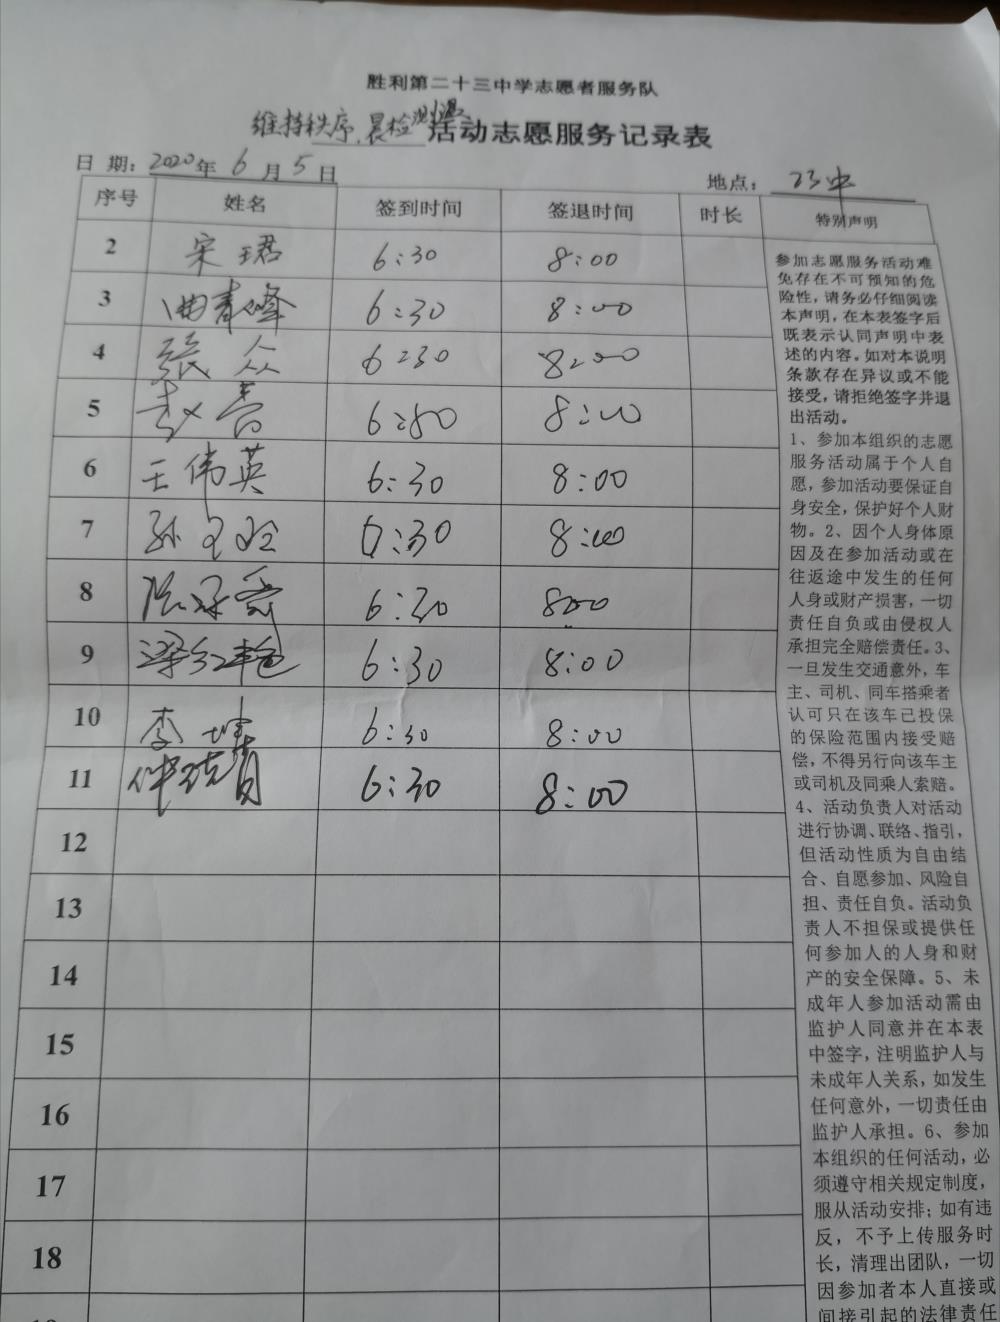 胜利第二十三中学志愿者服务队
维持秩序、晨检测温活动志愿服务记录表
日 期：2020年 6 月 5 日 地点： 23中
序号 姓名 签到时间 签退时间 时长 特别声明
2 宋珺 6:30 8:00
3 曲青峰 6:30 8:00
4 张众 6:30 8:00
5 6:30 8:00
6 王伟英 6:30 8:00
7 孙 6:30 8:00
8 6:30 8:00
9 梁红艳 6:30 8:00
10 李 6:30 8:00
11 6:30 8:00
12
13
14
15
16
17
18
参加志愿服务活动难
免存在不可预知的危
险性，请务必仔细阅读
本声明，在本表签字后
既表示认同声明中表
述的内容。如对本说明
条款存在异议或不能
接受，请拒绝签字并退
出活动。
1、参加本组织的志愿
服务活动属于个人自
愿，参加活动要保证自
身安全，保护好个人财
物。2、因个人身体原
因及在参加活动或在
往返途中发生的任何
人身或财产损害，一切
责任自负或由侵权人
承担完全赔偿责任。3、
一旦发生交通意外，车
主、司机、同车搭乘者
认可只在该车已投保
的保险范围内接受赔
偿，不得另行向该车主
或司机及同乘人索赔。
4、活动负责人对活动
进行协调、联络、指引，
但活动性质为自由结
合、自愿参加、风险自
担、责任自负。活动负
责人不担保或提供任
何参加人的人身和财
产的安全保障。5、未
成年人参加活动需由
监护人同意并在本表
中签字，注明监护人与
未成年人关系，如发生
任何意外，一切责任由
监护人承担。6、参加
本组织的任何活动，必
须遵守相关规定制度，
服从活动安排；如有违
反，不予上传服务时
长，清理出团队，一切
因参加者本人直接或
间接引起的法律责任